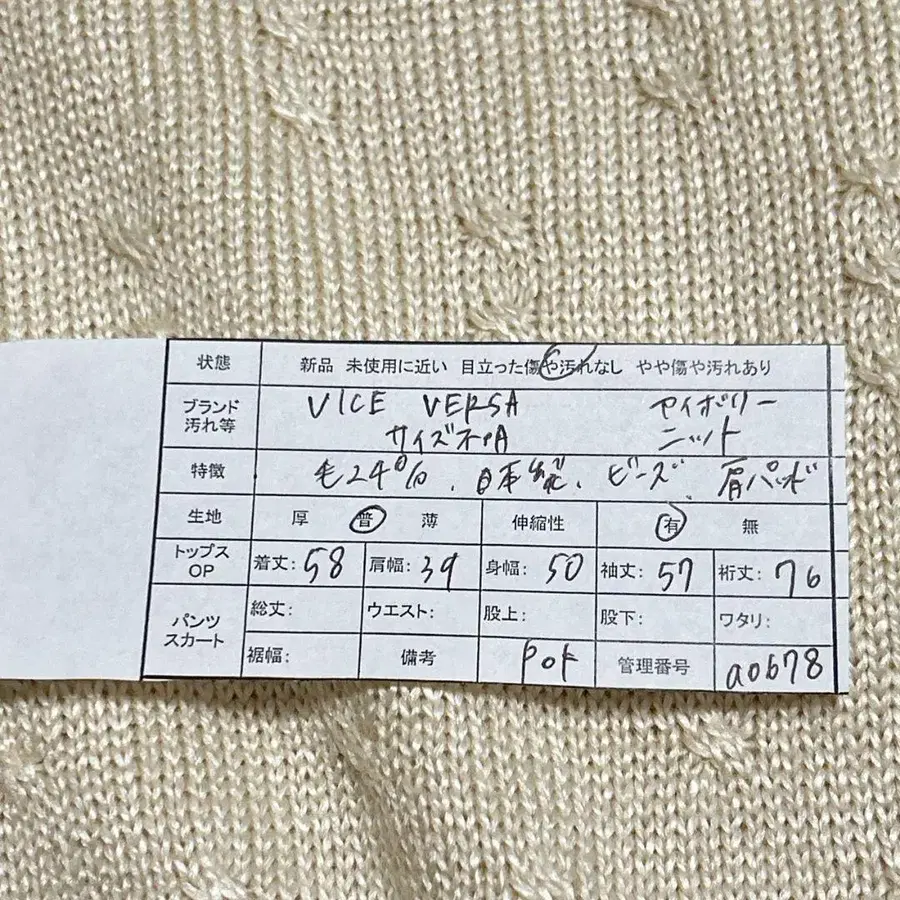 状態 新品 未使用に近い 目立った傷や汚れなし やや傷や汚れあり
ブランド VICE VERSA
汚れ等 サイズ不明 ニット
特徴 毛24% 、日本製、ビーズ、肩パッド
生地 厚 普 薄 伸縮性 有 無
トップス OP 着丈: 58 肩幅: 39 身幅: 50 袖丈: 57 裄丈: 76
パンツ スカート 総丈: ウエスト: 股上: 股下: ワタリ:
裾幅: 備考 管理番号 a0678